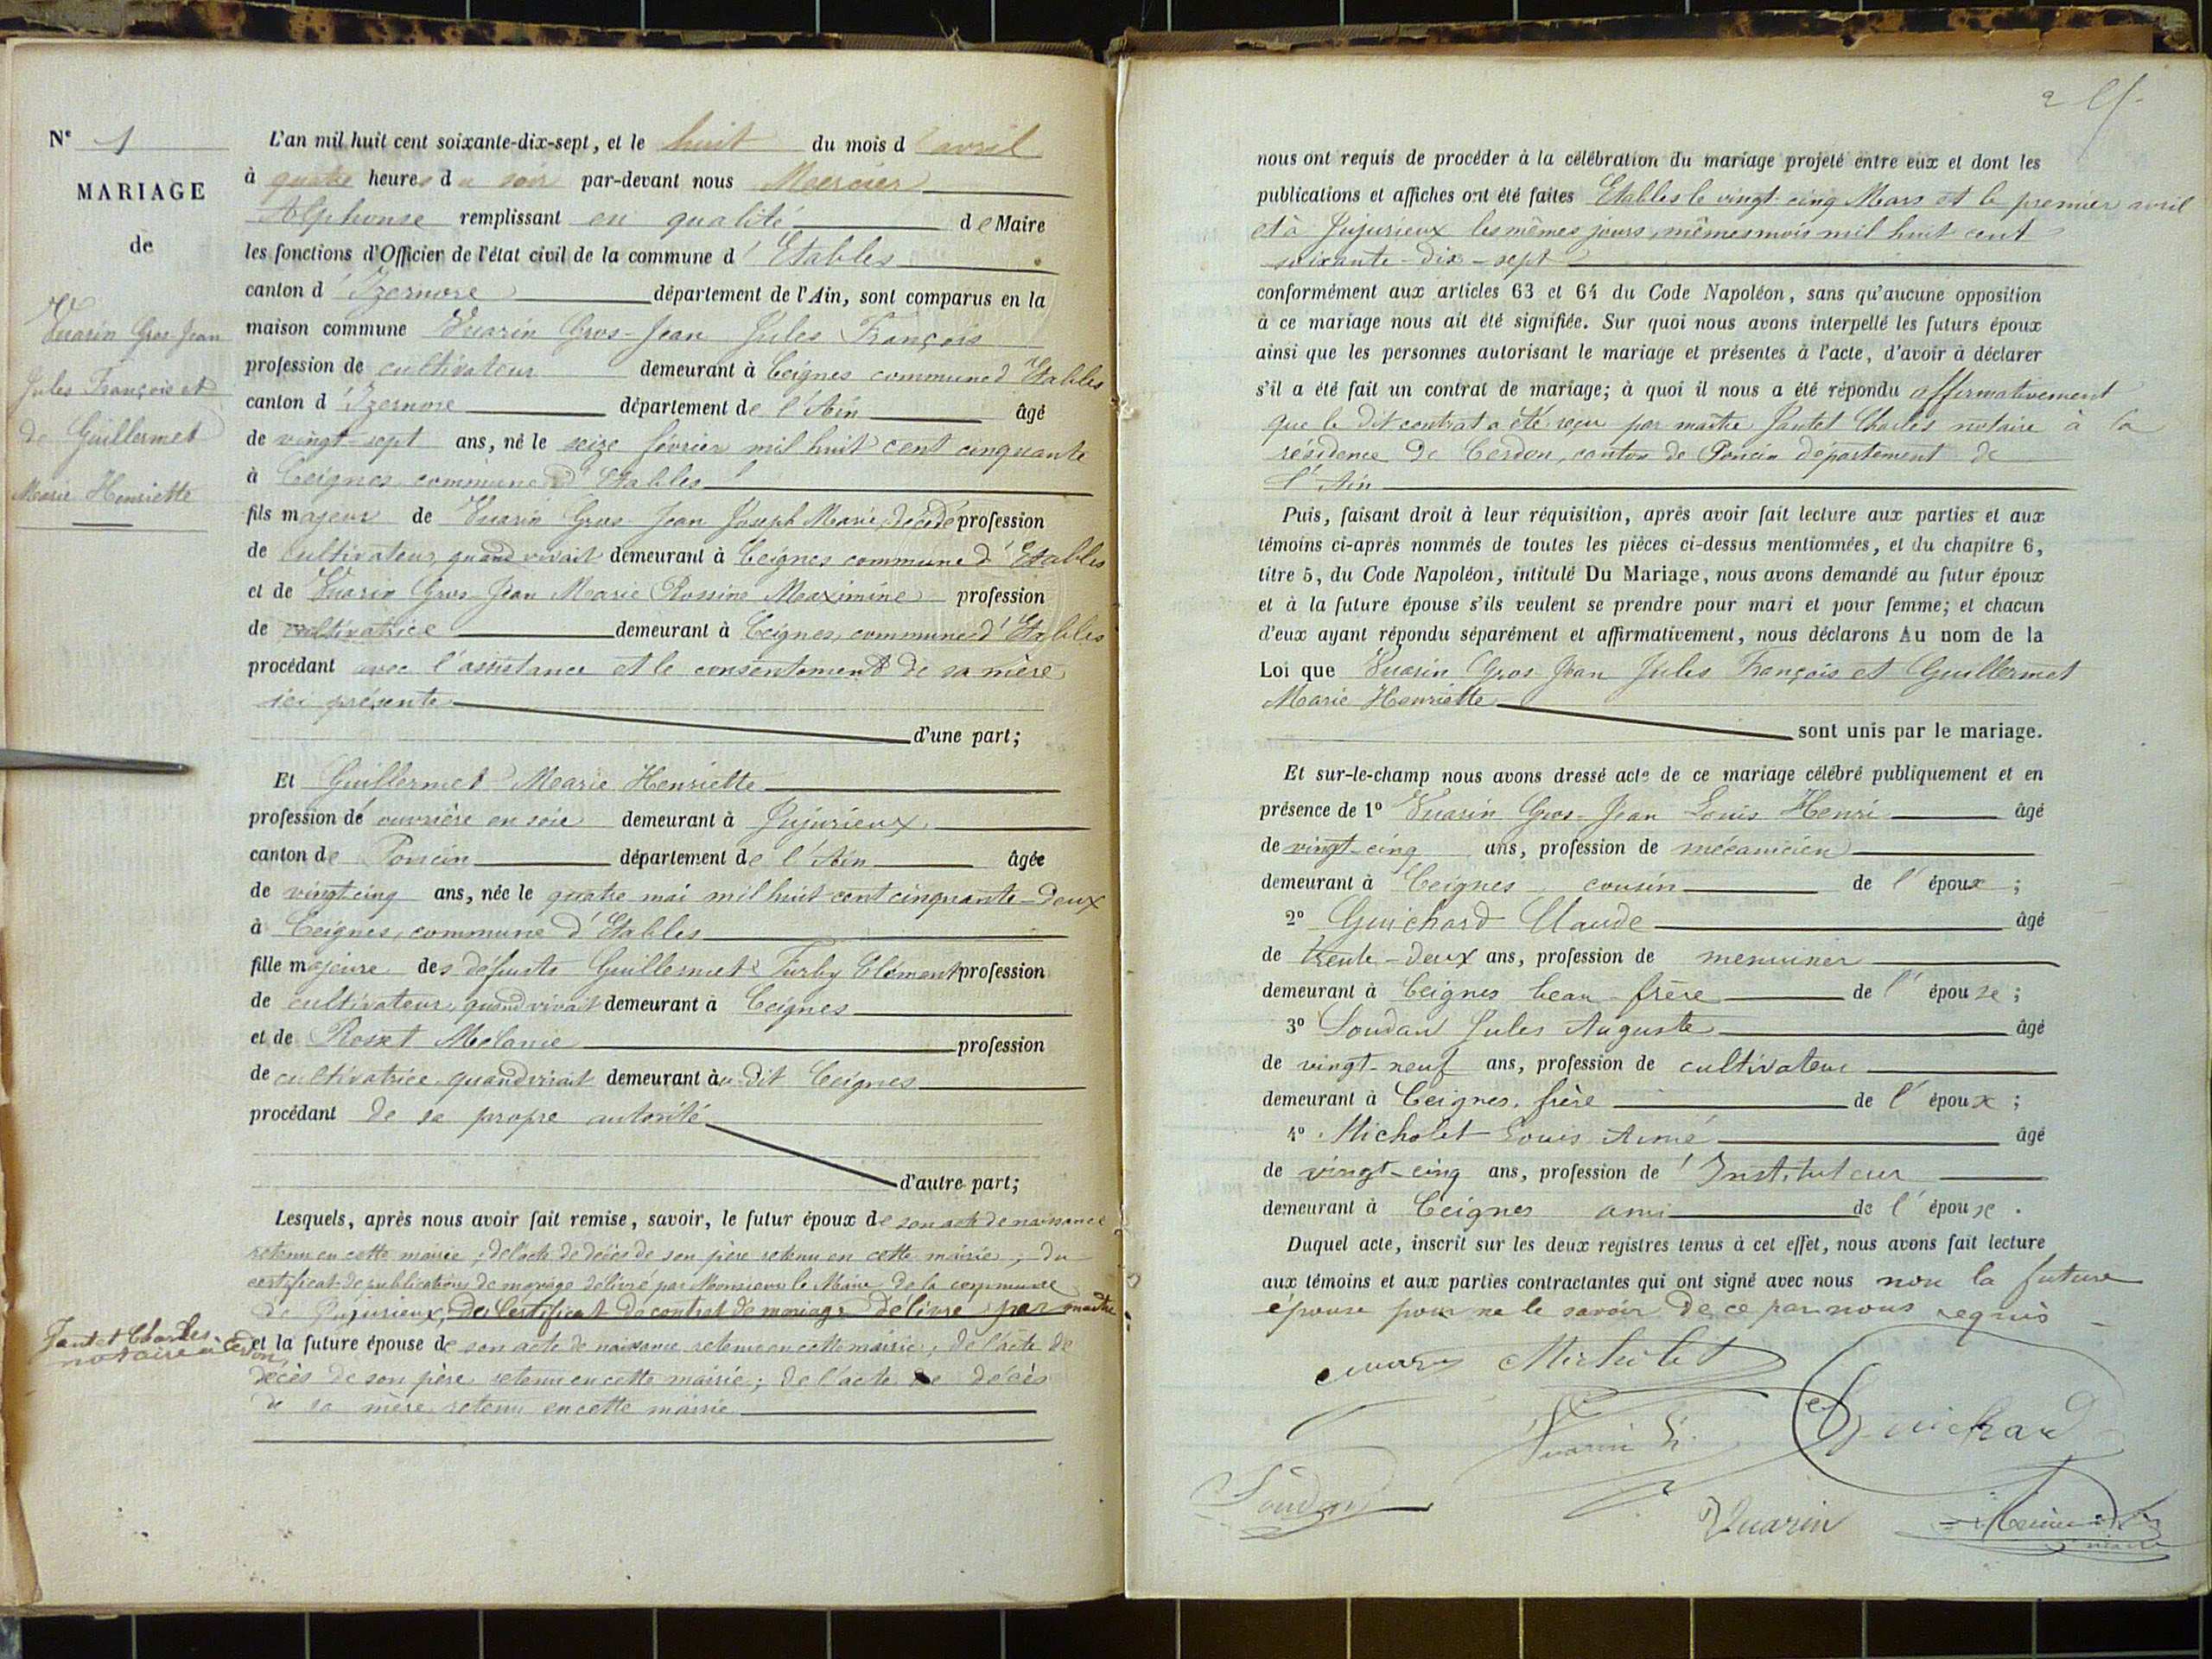 Nº 1
MARIAGE
de
Vuarin Gros-Jean
Jules François et
de Guillermet
Marie Henriette
L'an mil huit cent soixante-dix-sept, et le huit du mois d'avril
à quatre heures du soir par-devant nous Mercier
Alphonse remplissant en qualité de Maire
les fonctions d'Officier de l'état civil de la commune d'Etables
canton d'Izernore département de l'Ain, sont comparus en la
maison commune Vuarin Gros-Jean Jules François
profession de cultivateur demeurant à Ceignes commune d'Etables
canton d'Izernore département de l'Ain âgé
de vingt-sept ans, né le seize février mil huit cent cinquante
à Ceignes commune d'Etables
fils majeur de Vuarin Gros-Jean Joseph Marie, décédé profession
de cultivateur, quand vivait demeurant à Ceignes commune d'Etables
et de Vuarin Gros-Jean Marie Rossine Maximine profession
de cultivatrice demeurant à Ceignes, commune d'Etables
procédant avec l'assistance et le consentement de sa mère
ici présente
d'une part;
Et Guillermet Marie Henriette
profession de ouvrière en soie demeurant à Jujurieux
canton de Poncin département de l'Ain âgée
de vingt cinq ans, née le quatre mai mil huit cent cinquante-deux
à Ceignes, commune d'Etables
fille majeure des défunts Guillermet Furby Clément profession
de cultivateur, quand vivait demeurant à Ceignes
et de Rosset Mélanie profession
de cultivatrice quand vivait demeurant au dit Ceignes
procédant de sa propre autorité
d'autre part;
Lesquels, après nous avoir fait remise, savoir, le futur époux de son acte de naissance
retenu en cette mairie; de l'acte de décès de son père retenu en cette mairie; du
certificat de publications de mariage délivré par Monsieur le Maire de la commune
de Jujurieux; du Certificat de contrat de mariage délivré par maître
Jantet Charles,
notaire à Cerdon,
et la future épouse de son acte de naissance retenu en cette mairie; de l'acte de
décès de son père retenu en cette mairie; de l'acte de décès
de sa mère retenu en cette mairie
2
nous ont requis de procéder à la célébration du mariage projeté entre eux et dont les
publications et affiches ont été faites Etables le vingt-cinq Mars et le premier avril
et à Jujurieux les mêmes jours, mêmes mois mil huit cent
soixante-dix-sept
conformément aux articles 63 et 64 du Code Napoléon, sans qu'aucune opposition
à ce mariage nous ait été signifiée. Sur quoi nous avons interpellé les futurs époux
ainsi que les personnes autorisant le mariage et présentes à l'acte, d'avoir à déclarer
s'il a été fait un contrat de mariage; à quoi il nous a été répondu affirmativement
que le dit contrat a été reçu par maître Jantet Charles notaire à la
résidence de Cerdon, canton de Poncin département de
l'Ain
Puis, faisant droit à leur réquisition, après avoir fait lecture aux parties et aux
témoins ci-après nommés de toutes les pièces ci-dessus mentionnées, et du chapitre 6,
titre 5, du Code Napoléon, intitulé Du Mariage, nous avons demandé au futur époux
et à la future épouse s'ils veulent se prendre pour mari et pour femme; et chacun
d'eux ayant répondu séparément et affirmativement, nous déclarons Au nom de la
Loi que Vuarin Gros Jean Jules François et Guillermet
Marie Henriette
sont unis par le mariage.
Et sur-le-champ nous avons dressé acte de ce mariage célébré publiquement et en
présence de 1º Vuarin Gros-Jean Louis Henri âgé
de vingt-cinq ans, profession de mécanicien
demeurant à Ceignes, cousin de l'époux;
2º Guichard Claude âgé
de trente-deux ans, profession de menuisier
demeurant à Ceignes beau-frère de l'épouse;
3º Soudan Jules Auguste âgé
de vingt-neuf ans, profession de cultivateur
demeurant à Ceignes, frère de l'époux;
4º Micholet Louis Aimé âgé
de vingt-cinq ans, profession de Instituteur
demeurant à Ceignes ami de l'épouse.
Duquel acte, inscrit sur les deux registres tenus à cet effet, nous avons fait lecture
aux témoins et aux parties contractantes qui ont signé avec nous non la future
épouse pour ne le savoir de ce par nous requis
Vuarin Micholet
Vuarin h. Guichard
Soudan
Vuarin Mercier
maire